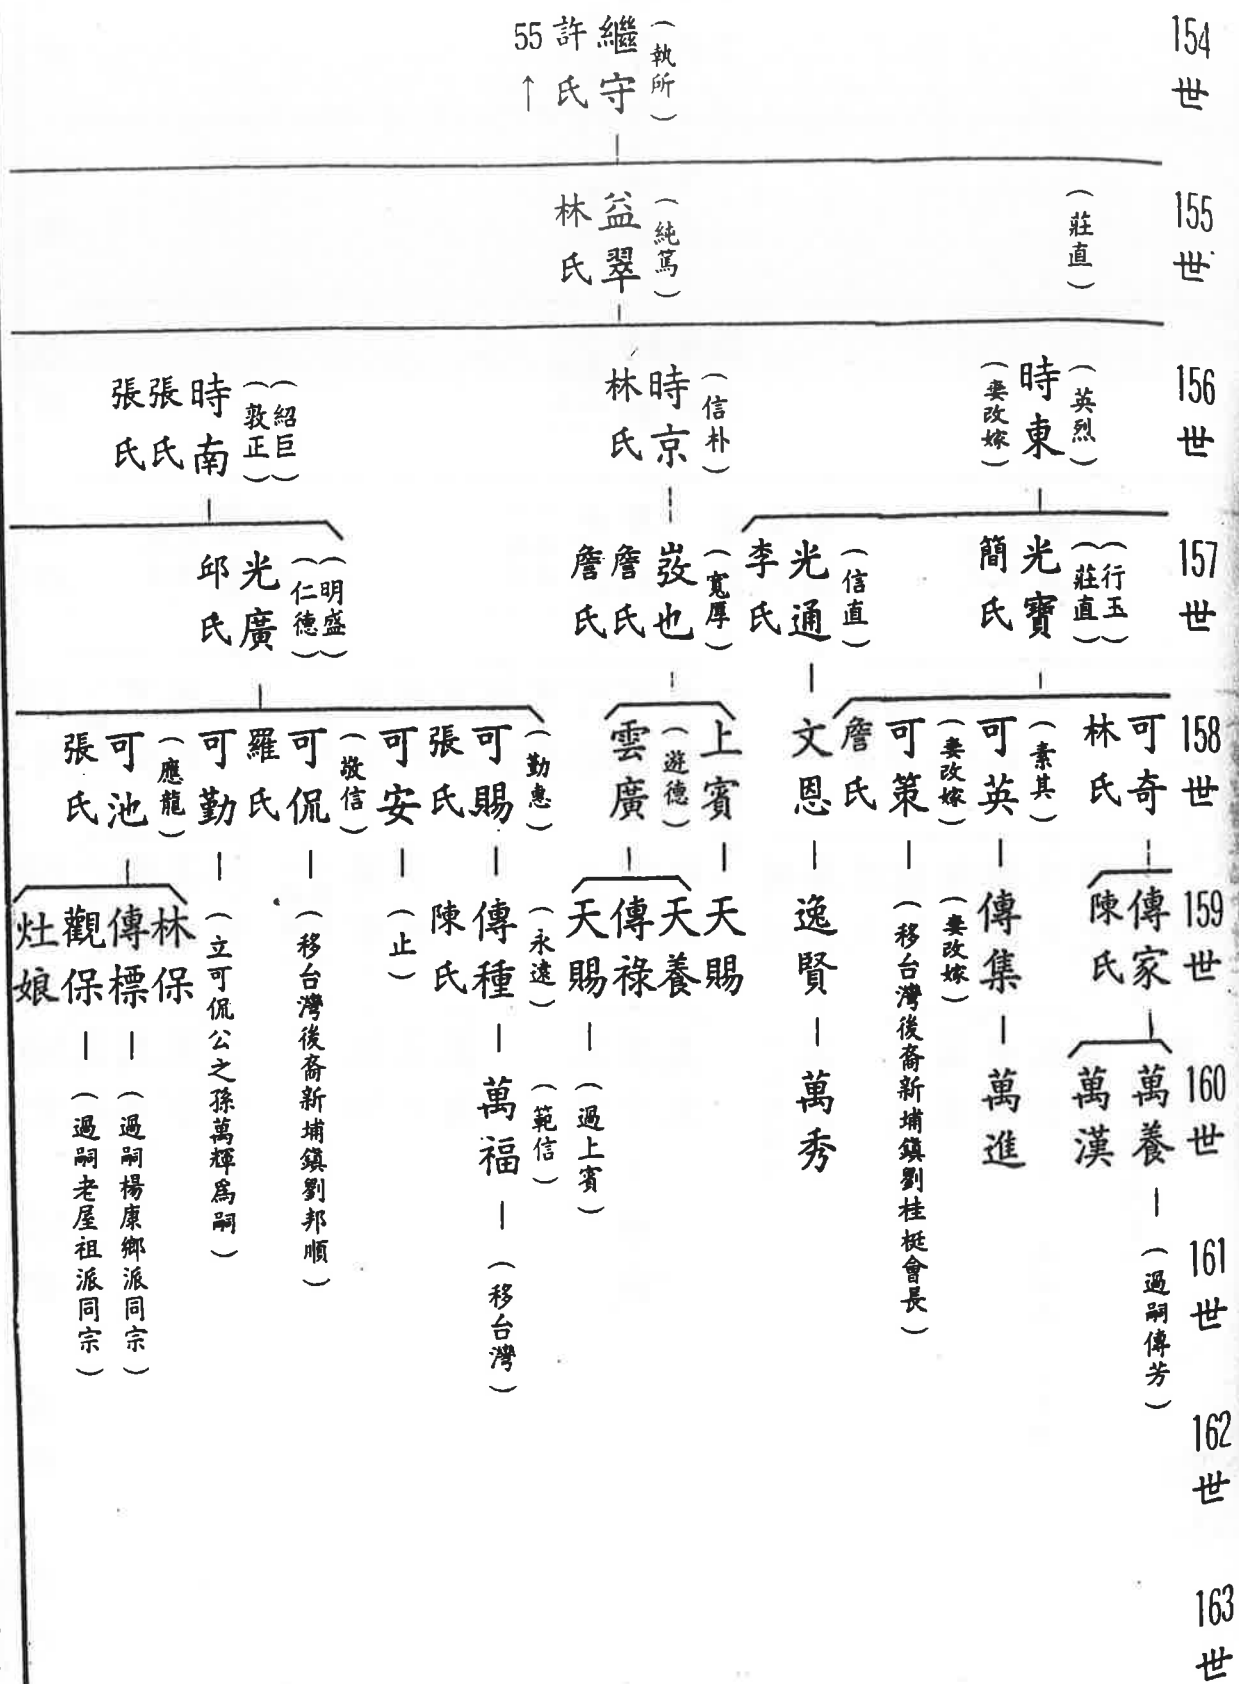 154世
繼守
（執所）
許氏
55↑
155世
（莊直）
益翠
（純篤）
林氏
156世
（英烈）
時東
（妻改嫁）
（信朴）
時京
林氏
（紹巨）
（敦正）
時南
張氏
張氏
157世
（行玉）
（莊直）
光寶
簡氏
（信直）
光通
李氏
（寬厚）
也
詹氏
詹氏
（明盛）
（仁德）
光廣
邱氏
158世
可奇
林氏
（素其）
可英
（妻改嫁）
可策
詹氏
文恩
上賓
（遊德）
雲廣
（勤惠）
可賜
張氏
可安
（敬信）
可侃
羅氏
可勤
（應龍）
可池
張氏
159世
傳家
陳氏
傳集
（妻改嫁）
（移台灣後裔新埔鎮劉桂梃會長）
逸賢
天賜
天養
傳祿
天賜
（永遠）
傳種
陳氏
（止）
（移台灣後裔新埔鎮劉邦順）
（立可侃公之孫萬輝為嗣）
林保
傳標
觀保
灶娘
160世
萬養
萬漢
萬進
萬秀
（過上賓）
（範信）
萬福
（過嗣楊康鄉派同宗）
（過嗣老屋祖派同宗）
161世
（過嗣傳芳）
（移台灣）
162世
163世